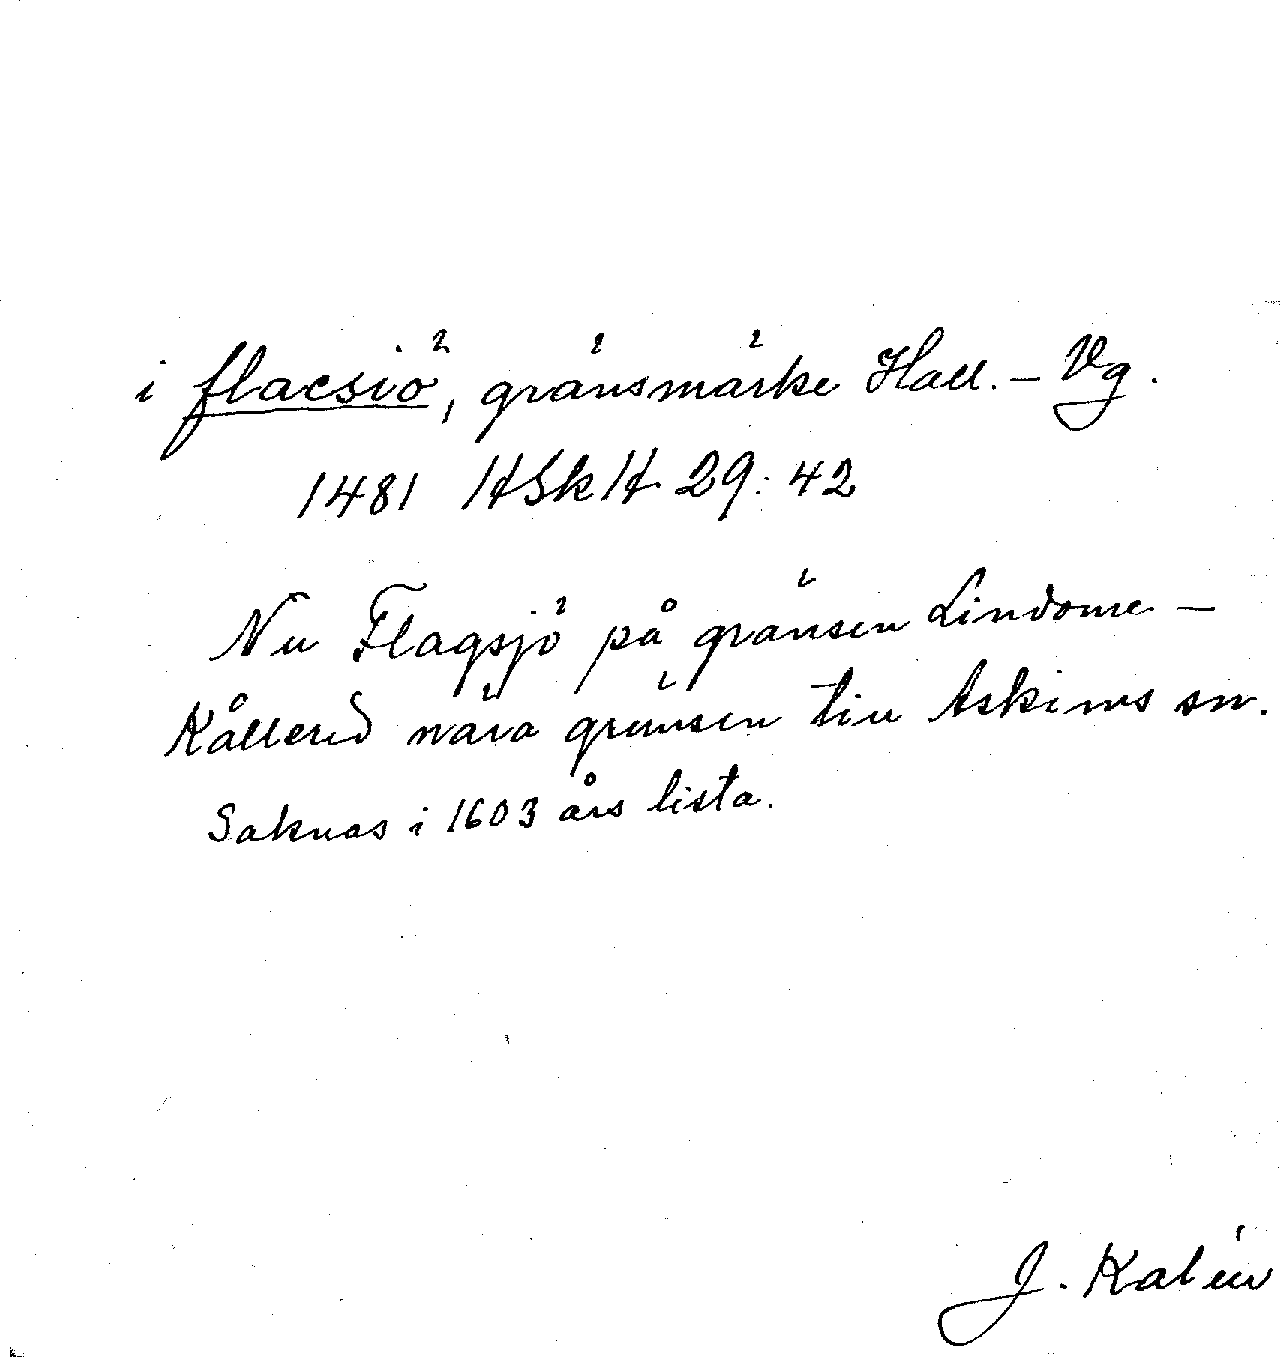 i flacsiö, gränsmärke Hall. – Vg.
1481 HSkH 29:42
Nu Flagsjö på gränsen Lindome –
Kållered nära gränsen till Askims sn.
Saknas i 1603 års lista.
J. Kalén